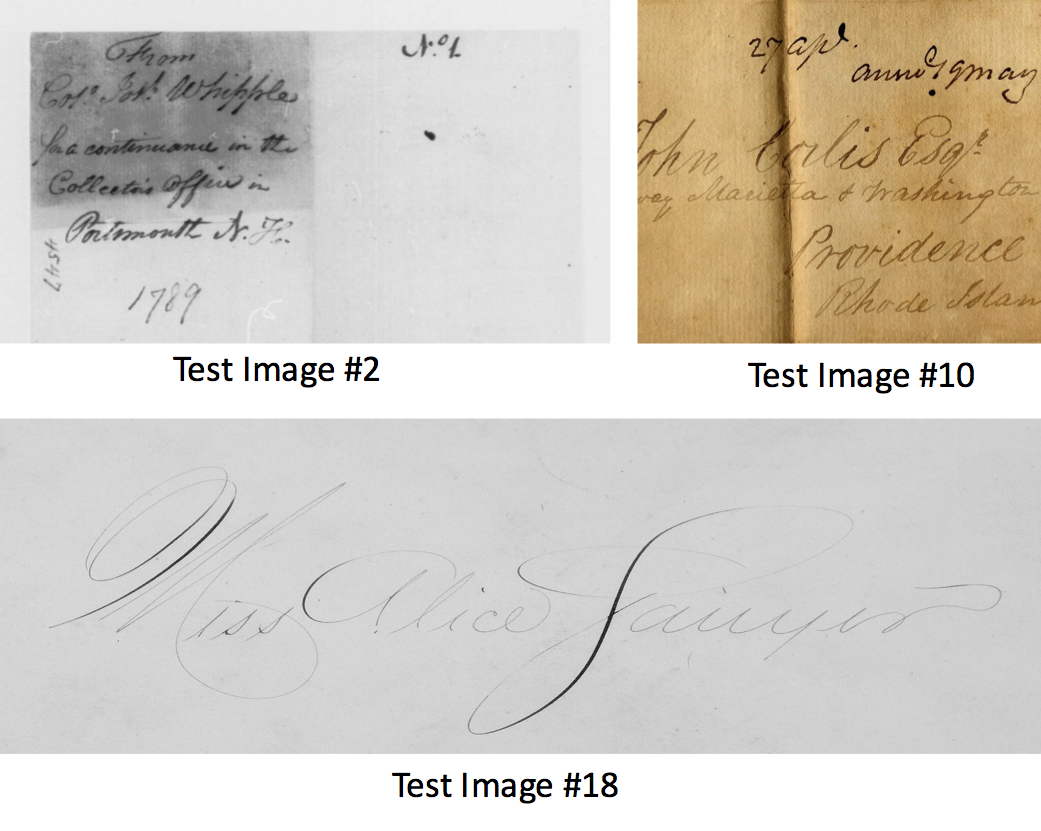 From
Colo. Jos. Whipple
for a continuance in the
Collector's Office in
Portsmouth N. H.
1789
4547
No. 1
Test Image #2
27 apl.
anno 19 may
John Corlis Esqr.
way Marietta & Washington
Providence
Rhode Islan
Test Image #10
Miss Alice Sawyer
Test Image #18